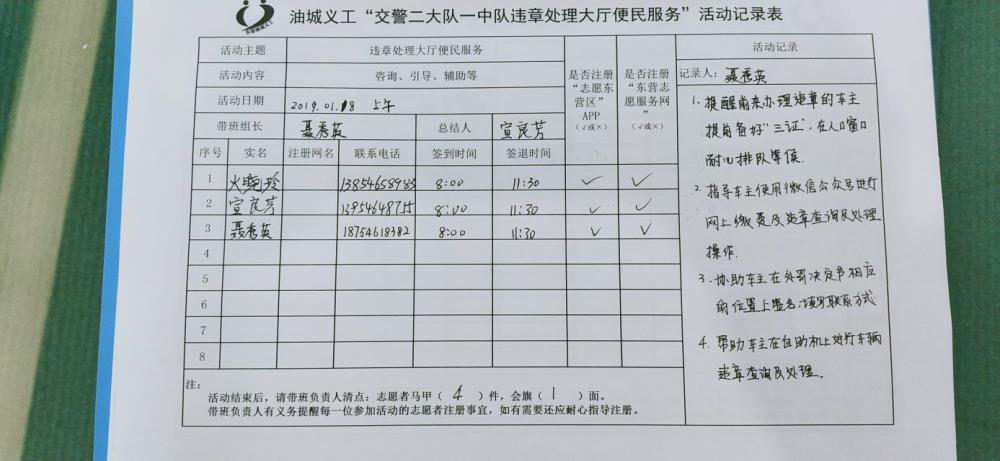 油城义工
油城义工“交警二大队一中队违章处理大厅便民服务”活动记录表
活动主题 违章处理大厅便民服务
活动内容 咨询、引导、辅助等
活动日期 2019.01.18 上午
带班组长 聂秀英 总结人 宣良芳
是否注册“志愿东营区”APP（√或×）
是否注册“东营志愿服务网”（√或×）
序号 实名 注册网名 联系电话 签到时间 签退时间
1 火晓玲 13854658983 8:00 11:30 ✓ ✓
2 宣良芳 13954648755 8:00 11:30 ✓ ✓
3 聂秀英 18754618382 8:00 11:30 ✓ ✓
4
5
6
7
8
活动记录
记录人：聂秀英
1. 提醒前来办理违章的车主
提前备好“三证”，在人口窗口
耐心排队等侯.
2. 指导车主使用微信公众号进行
网上缴费及违章查询及处理
操作.
3. 协助车主在处罚决定书相应
的位置上签名,填写联系方式
4. 帮助车主在自助机上进行车辆
违章查询及处理.
注：
活动结束后，请带班负责人清点：志愿者马甲（ 4 ）件，会旗（ 1 ）面。
带班负责人有义务提醒每一位参加活动的志愿者注册事宜，如有需要还应耐心指导注册。